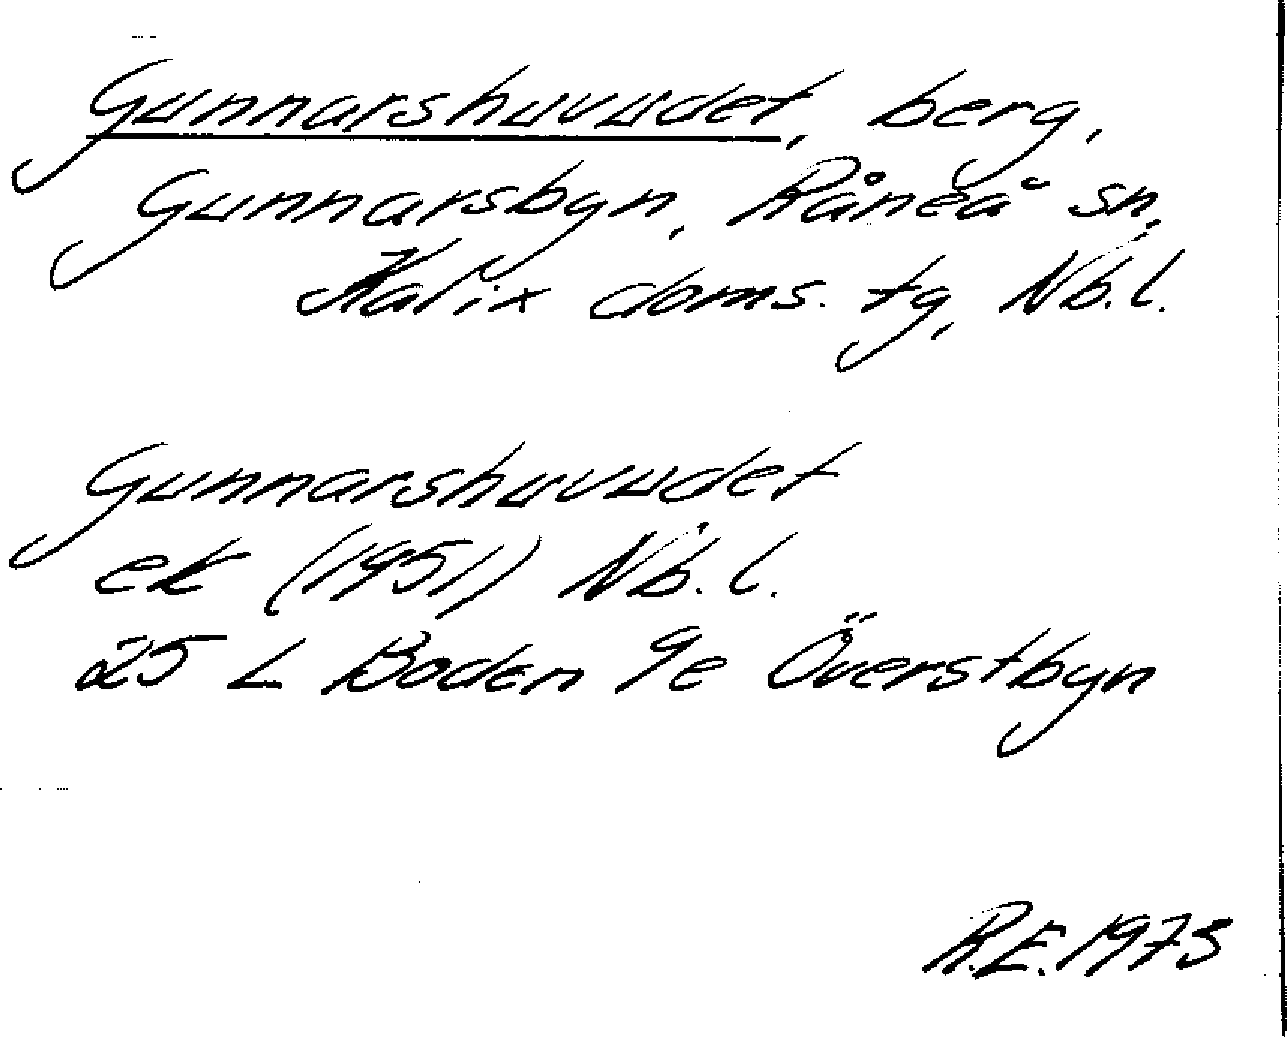 Gunnarshuvudet, berg,
Gunnarsbyn, Råneå sn,
Kalix doms. tg, Nb. l.
Gunnarshuvudet
ek (1951) Nb. l.
25 L Boden 9e Överstbyn
R.E. 1975